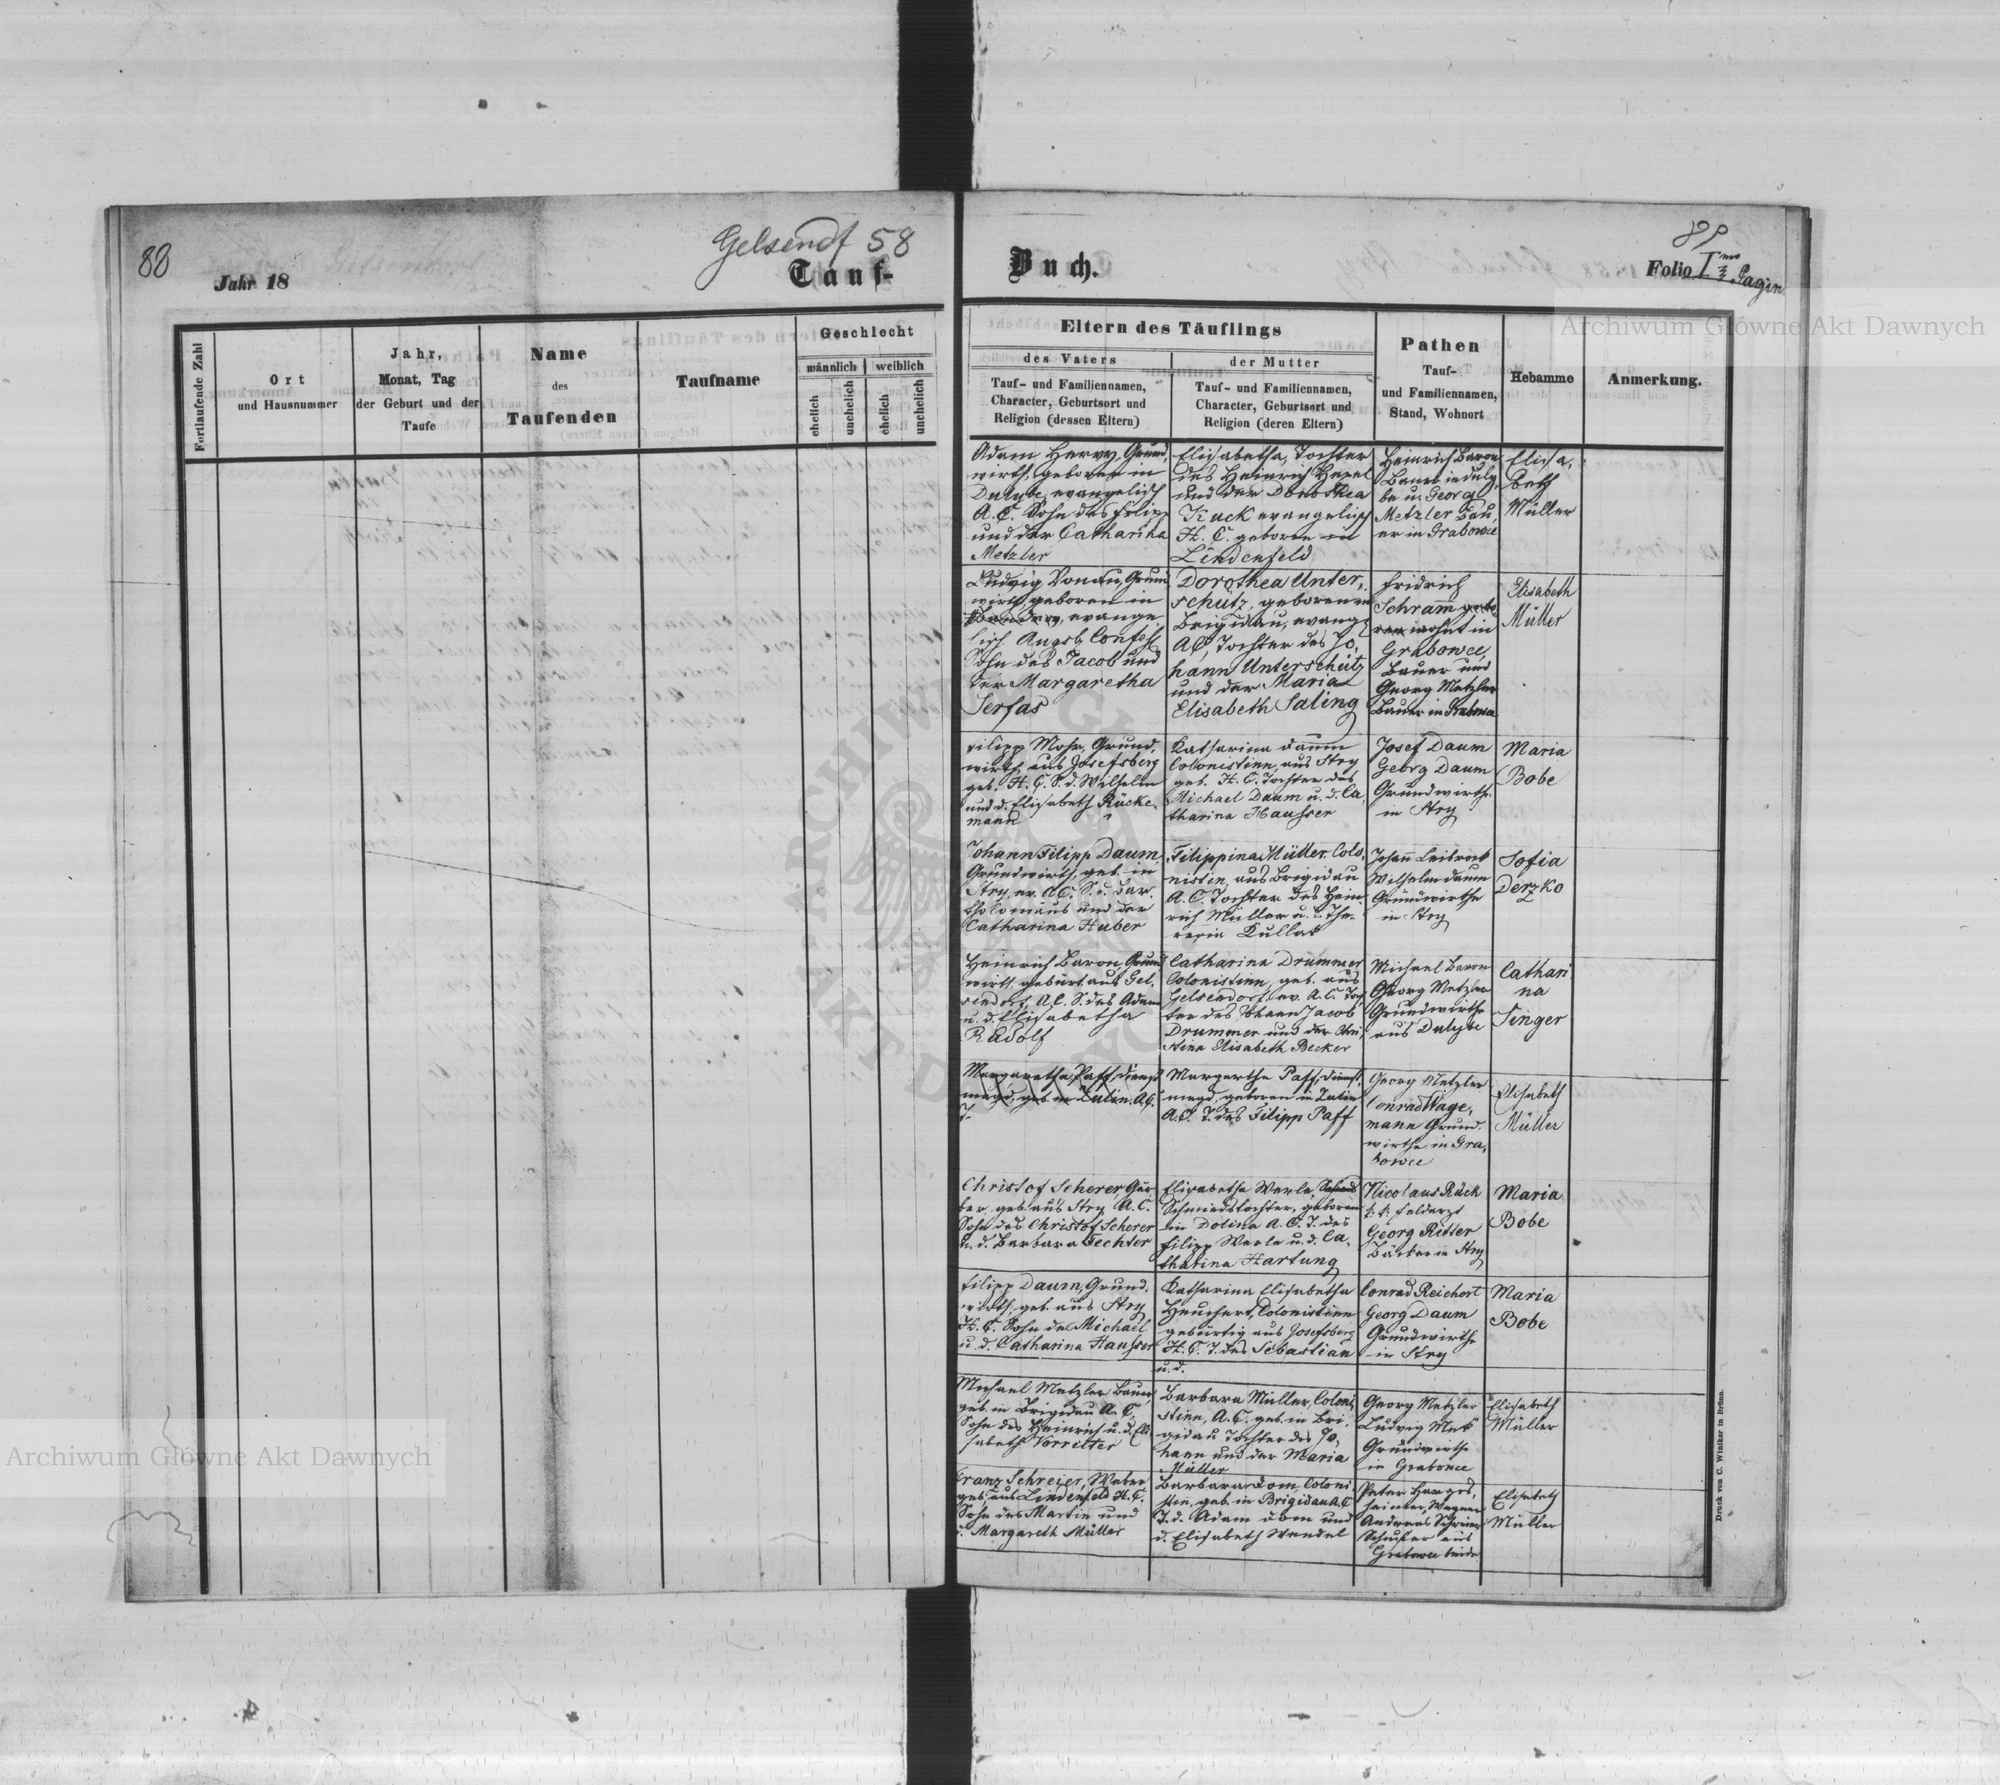 88
Gelsendf 58
89
Jahr 18
Tauf-
Buch.
Folio I
Pagin.
Archiwum Główne Akt Dawnych
Fortlaufende Zahl
Ort
und Hausnummer
Jahr,
Monat, Tag
der Geburt und der
Taufe
Name
des
Taufenden
Taufname
Geschlecht
männlich
weiblich
ehelich
unehelich
ehelich
unehelich
Eltern des Täuflings
des Vaters
Tauf- und Familiennamen,
Character, Geburtsort und
Religion (dessen Eltern)
der Mutter
Tauf- und Familiennamen,
Character, Geburtsort und
Religion (deren Eltern)
Pathen
Tauf-
und Familiennamen,
Stand, Wohnort
Hebamme
Anmerkung.
Adam Hervy, Grund,
wirth, geboren in
Dulybe, evangelisch
A. C. Sohn des Filipp
und der Catharina
Metzler
Elisabetha, Tochter
des Heinrich Herel
und der Dorothea
Kuck evangelisch
H. C. geboren in
Lindenfeld
Heinrich Baron
Bauer in Duly,
be u. Georg
Metzler Bau,
er in Grabowce
Elisa,
beth
Müller
Ludvig Donau, Grund
wirth, geboren in
evange,
lisch Augsb Confess
Sohn des Jacob und
der Margaretha
Serfas
Dorothea Unter,
schütz, geboren in
Brigidau, evang.
AC, Tochter des Jo,
hann Unterschütz
und der Maria
Elisabeth Saling
Fridrich
Schram
wohnt in
Grabowce,
Bauer und
Georg Metzler
Bauer in Grabowce
Elisabeth
Müller
Filipp Mohr, Grund,
wirth, aus Josefsberg
geb. H. C. S. d. Wilhelm
und d. Elisabeth Rücke,
mann
Katharina Daum
Colonistinn, aus Stry
geb. H. C. Tochter des
Michael Daum u. d. Ca,
tharina Hausser
Josef Daum
Georg Daum
Grundwirthe
in Stry
Maria
Bobe
Johann Filipp Daum,
Grundwirth, geb. in
Stry, ev. AC. S. d. Bar,
tholomäus und der
Catharina Huber
Filippina Müller, Colo,
nistin, aus Brigidau
A. C. Tochter des Hein
rich Müller u. d. The,
resia Kullak
Johann Leibrock
Wilhelm Daum
Grundwirthe
in Stry
Sofia
Derzko
Heinrich Baron, Grund
wirth, gebürt. aus Gel,
sendorf, AC. S. des Adam
u. d. Elisabetha
Rudolf
Catharina Drummer
Colonistinn, geb. aus
Gelsendorf, ev. A. C. Toch
ter des Johann Jacob
Drummer und der Chri,
stina Elisabeth Becker
Michael Baron
Georg Metzler
Grundwirthe
aus Dulybe
Cathari
na
Singer
Margaretha Paff, Dienst
magd, geb. in Zulin. A. C.
T.
Margarthe Paff, Dienst,
magd, geboren in Zulin
A. C. T. des Filipp Paff
Georg Metzler
Conrad Wage,
mann Grund,
wirthe in Gra,
bowce
Elisabeth
Müller
Christof Scherer, Gär
ber, geb. aus Stry A. C.
Sohn des Christof Scherer
u. d. Barbara Fechter
Elisabetha Werle,
Schmiedstochter, geboren
in Dolina A. C. T. des
Filipp Werle u. d. Ca,
tharina Hartung
Nicolaus Rück
k. k. Feldarzt
Georg Ritter
Bäcker in Stry
Maria
Bobe
Filipp Daum, Grund,
wirth, geb. aus Stry
H. C. Sohn de Michael
u. d. Catharina Hausser
Katharina Elisabetha
Heuchert, Colonistinn
gebürtig aus Josefsberg
H. C. T. des Sebastian
u. d.
Conrad Reichert
Georg Daum
Grundwirthe
in Stry
Maria
Bobe
Michael Metzler, Bauer,
geb. in Brigidau A. C.
Sohn des Heinrich u. d. Eli
sabeth Vorreiter
Barbara Müller, Coloni
stinn, A. C. geb. in Bri,
gidau Tochter des Jo,
hann und der Maria
Müller
Georg Metzler
Ludvig Mek
Grundwirthe
in Grabowce
Elisabeth
Müller
Franz Schreier, Weber
geb. aus Lindenfeld H. C.
Sohn des Martin und
d. Margareth Müller
Barbara Dom, Coloni,
stin, geb. in Brigidau A. C
T. d. Adam Dom und
d. Elisabeth Wendel
Peter Harges,
heimer, Wagner
Andreas Schreier
Schuster aus
Grabowce beide
Elisabeth
Müller
Druck von C. Winiker in Brünn.
Archiwum Główne Akt Dawnych